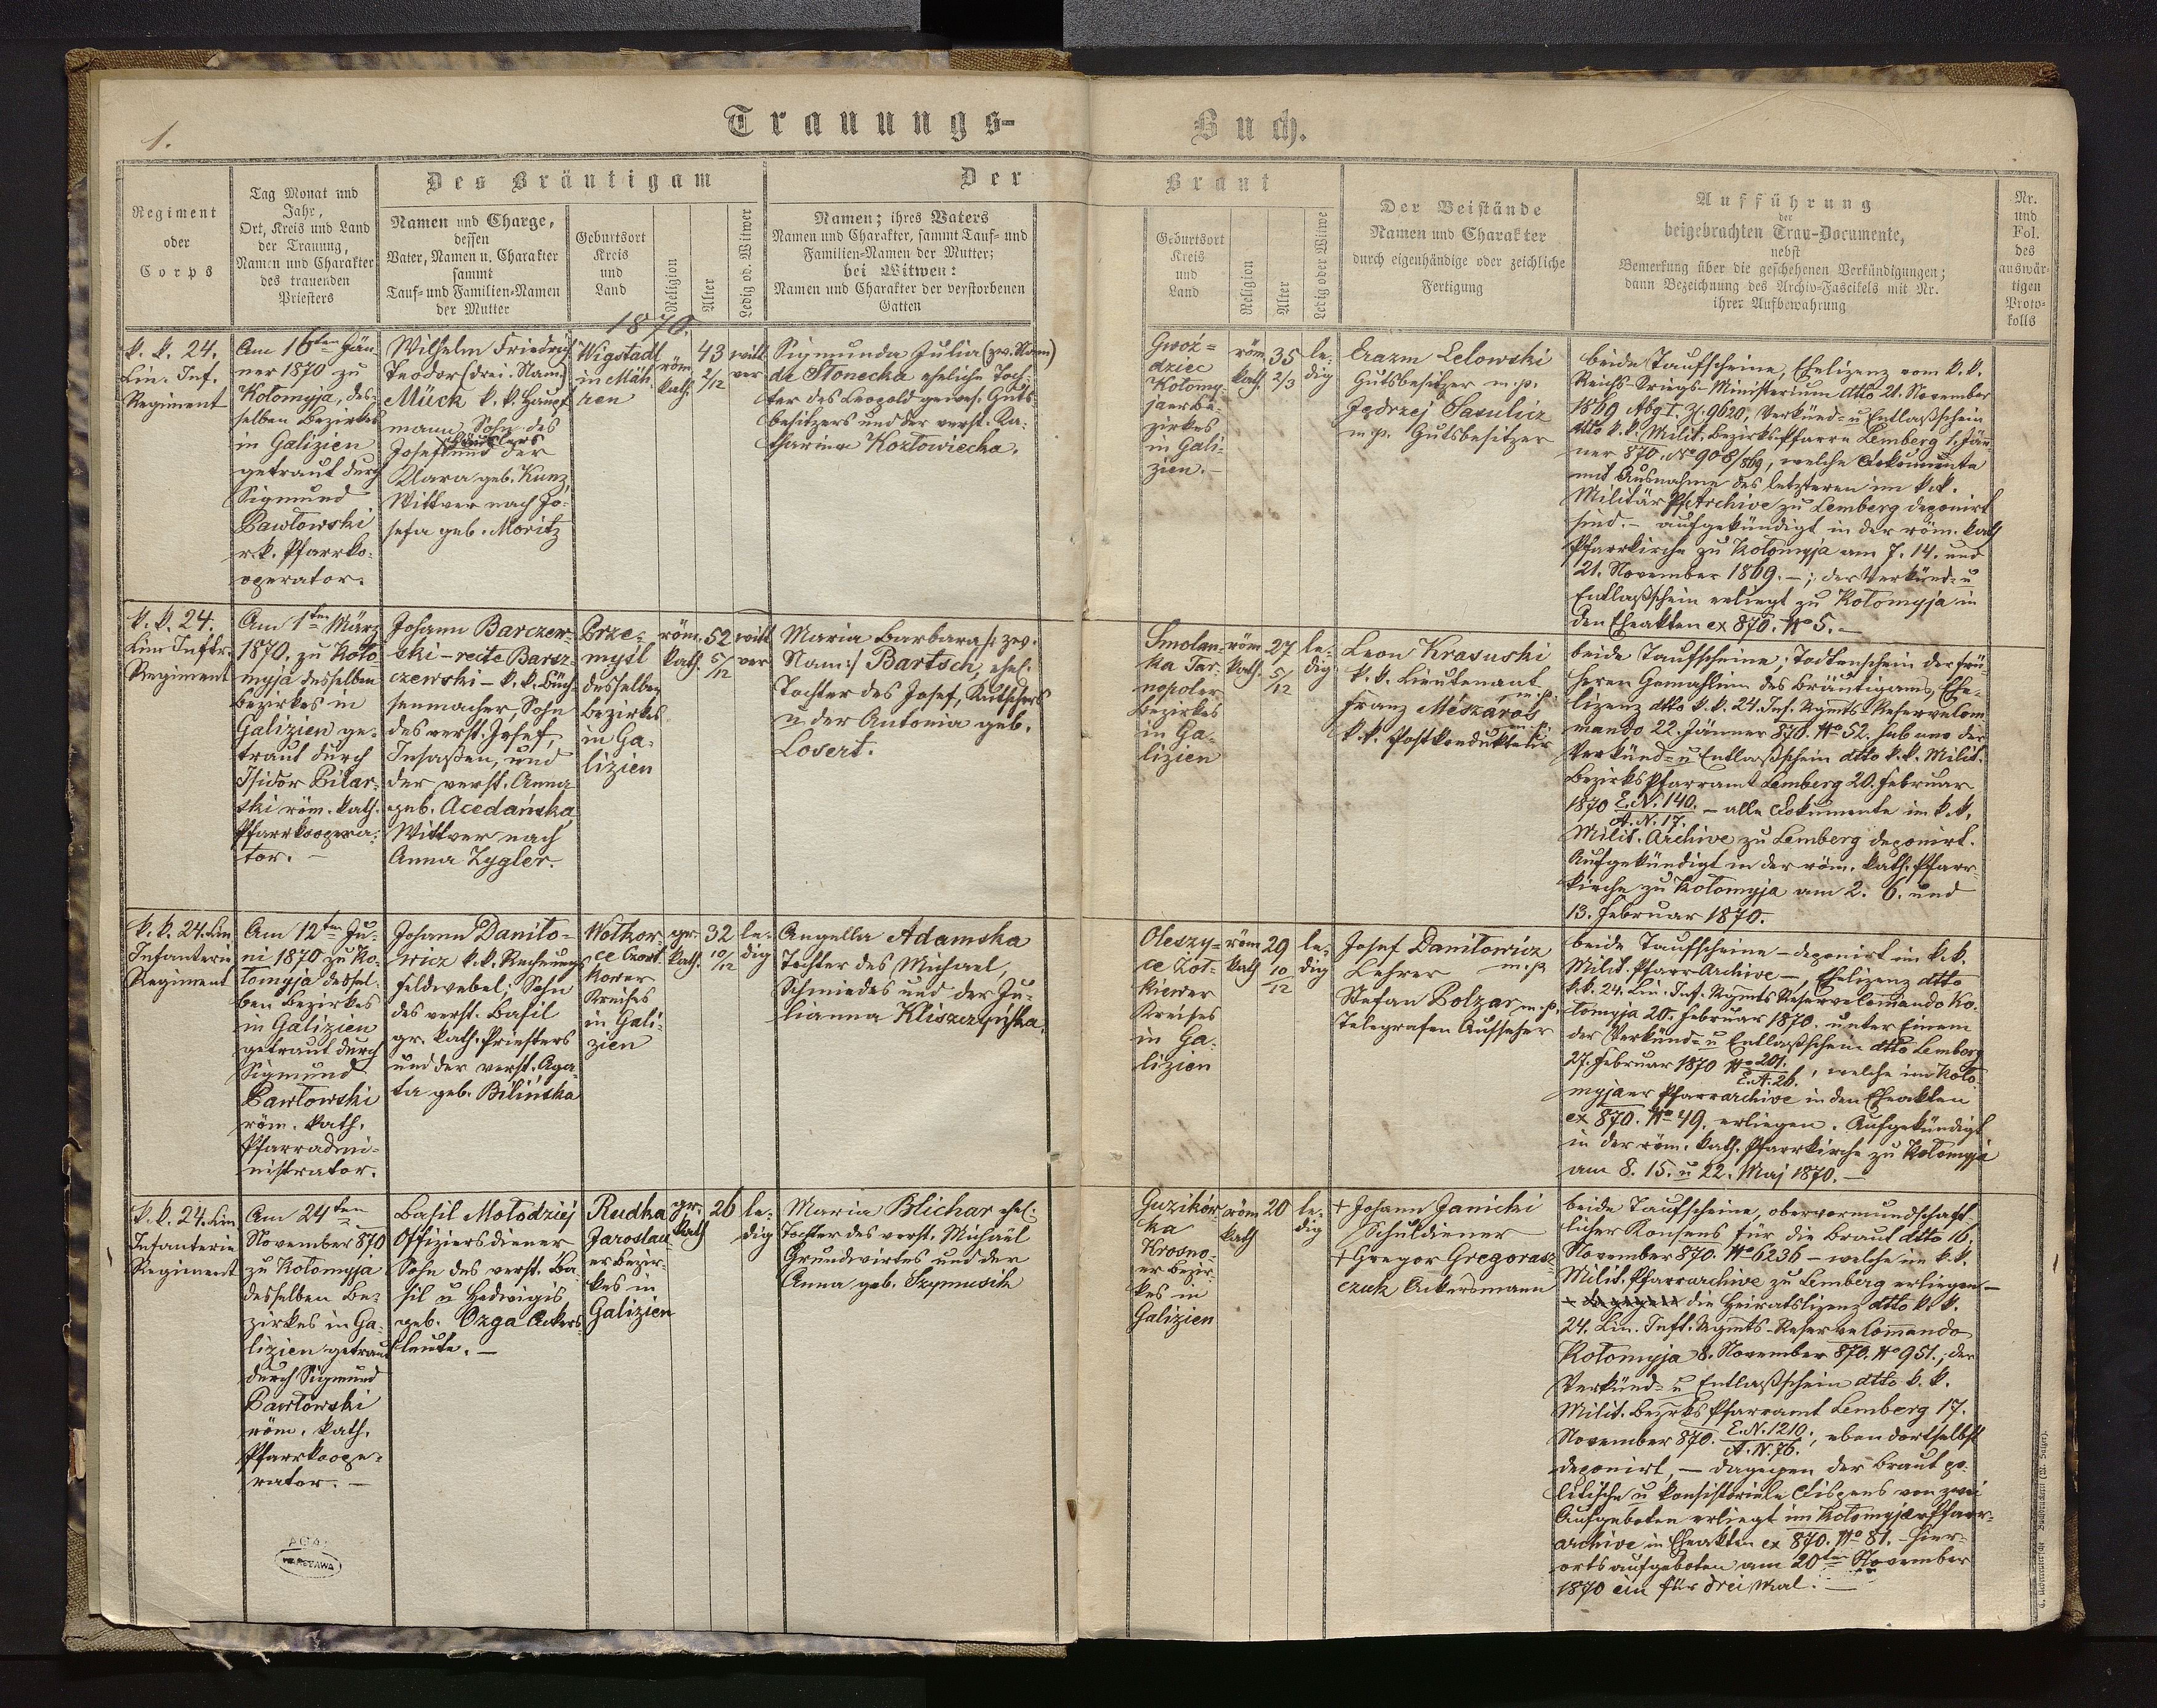 1.
Trauungs-Buch.
Regiment
oder
Corps
Tag Monat und
Jahr,
Ort, Kreis und Land
der Trauung,
Namen und Charakter
des trauenden
Priesters
Des Bräutigam
Namen und Charge,
dessen
Vater, Namen u. Charakter
sammt
Tauf- und Familien-Namen
der Mutter
Geburtsort
Kreis
und
Land
Religion
Alter
Ledig od. Witwer
Der Braut
Namen; ihres Vaters
Namen und Charakter, sammt Tauf- und
Familien-Namen der Mutter;
bei Witwen:
Namen und Charakter der verstorbenen
Gatten
Geburtsort
Kreis
und
Land
Religion
Alter
Ledig oder Witwe
Der Beistände
Namen und Charakter
durch eigenhändige oder zeichliche
Fertigung
Aufführung
der
beigebrachten Trau-Documente,
nebst
Bemerkung über die geschehenen Verkündigungen;
dann Bezeichnung des Archiv-Fascikels mit Nr.
ihrer Aufbewahrung
Nr.
und
Fol.
des
auswär-
tigen
Proto-
kolls
1870.
k. k. 24.
Lin. Inf.
Regiment
Am 16ten Jän
ner 1870 zu
Kołomyja, des-
selben Bezirkes
in Galizien
getraut durch
Sigmund
Pawłowski
r. k. Pfarrko-
operator.
Wilhelm Friedrich
Teodor (drei. Nam)
Mück k. k. Haupt
mann, Sohn des
Josef und der
Klara geb. Kunz,
Wittwer nach Jo-
sefa geb. Moritz
Wigstadl
in Mäh
ren
röm.
kath.
43
2/12
witt
wer
Sigmunda Julia (zw. Nam)
de Słonecka eheliche Toch-
ter des Leopold gewes. Guts
besitzers und der verst. Ka-
tharina Kozłowiecka.
Gwoź-
dziec
Kołomy-
jaer Be-
zirkes
in Gali-
zien. –
röm.
kath.
35
2/3
le-
dig
Erazm Lelowski
Gutsbesitzer m. p.
Jędrzej Sasulicz
m. p. Gutsbesitzer
beide Taufscheine, Ehelizenz vom k. k.
Reichs-Kriegs-Ministerium dtto 21. November
1869 Abg I. Z. 9620; Verkünd- u Entlaßschein
dtto k. k. Milit. Bezirks-Pfarre Lemberg 1. Jän-
ner 870. No 908/869, welche Dokumente
mit Ausnahme des letzteren im k. k.
Militär Pf. Archive zu Lemberg deponirt
sind. – aufgekündigt in der röm. kath
Pfarrkirche zu Kołomyja am 7. 14. und
21. November 1869. –; der Verkünd- u
Entlaßschein erliegt zu Kołomyja in
den Eheakten ex 870. No 5. –
k. k. 24.
Lin Inftr.
Regiment
Am 1ten März
1870. zu Koło-
myja desselben
Bezirkes in
Galizien ge-
traut durch
Isidor Pilar-
ski röm. kath.
Pfarrkoopera-
tor. –
Johann Barczew-
ski – recte Barsz-
czewski – k. k. Büch
senmacher, Sohn
des verst. Josef,
Insaßen, und
der verst. Anna
geb. Acedańska
Wittwer nach
Anna Zygler.
Prze-
myśl
desselben
Bezirkes
in Ga-
lizien
röm.
kath.
52
5/12
witt
wer
Maria Barbara /: zw.
Nam :/ Bartsch, ehel.
Tochter des Josef, Kutschers
u der Antonia geb.
Losert.
Smolan-
ka Tar-
nopoler
Bezirkes
in Ga-
lizien
röm
kath.
27
5/12
le-
dig
Leon Krasuski
k. k. Lieutenant
m. p.
Franz Mészáros
m. p.
k. k. Postkondukteur
beide Taufscheine; Todtenschein der frü-
heren Gemahlinn des Bräutigams, Ehe-
lizenz dtto k. k. 24. Inf. Rgmts-Reserve Com
mando 22. Jänner 870. No 52. sub uno der
Verkünd- u Entlaßschein dtto k. k. Milit.
Bezirks Pfarramt Lemberg 20. Februar
1870 E. N. 140. – alle Dokumente im k. k.
A. N. 17.
Milit. Archive zu Lemberg deponirt.
Aufgekündigt in der röm. kath. Pfarr-
kirche zu Kołomyja am 2. 6. und
13. Februar 1870.
k. k. 24. Lin
Infanterie
Regiment
Am 12ten Ju-
ni 1870 zu Ko-
łomyja dessel-
ben Bezirkes
in Galizien
getraut durch
Sigmund
Pawłowski
röm. kath.
Pfarradmi-
nistrator.
Johann Daniło-
wicz k. k. Rechnungs
feldwebel; Sohn
des verst. Basil
gr. kath. Priesters
und der verst. Aga-
ta geb. Bilińska
Wołkow-
ce Czort-
kower
Kreises
in Gali-
zien
gr.
kath.
32
10/12
le-
dig
Angella Adamska
Tochter des Michael,
Schmiedes und der Ju-
lianna Kliszczyńska.
Oleszy-
ce Żoł-
kiewer
Kreises
in Ga-
lizien
röm
kath
29
10/12
le-
dig
Josef Daniłowicz
Lehrer m. p.
Stefan Bolzar m. p.
Telegrafen Aufseher
beide Taufscheine – deponirt im k. k.
Milit. Pfarr-Archive –, Ehelizenz dtto
k. k. 24. Lin. Inf. Rgmts Reserve Comando Ko-
łomyja 20. Februar 1870. unter Einem
der Verkünd- u Entlaßschein dtto Lemberg
27. Februar 1870 No 201. , welche im Koło-
E. A. 26.
myjaer Pfarrarchive in den Eheakten
ex 870. No 49. erliegen. Aufgekündigt
in der röm. kath. Pfarrkirche zu Kołomyja
am 8. 15. u 22. Maj 1870. –
k. k. 24. Lin
Infanterie
Regiment
Am 24ten
November 870
zu Kołomyja
desselben Be-
zirkes in Ga-
lizien getraut
durch Sigmund
Pawłowski
röm. kath.
Pfarrkoope-
rator. –
Basil Mołodziej
Offiziersdiener
Sohn des verst. Ba-
sil u Hedwigis
geb. Ozga Ackers-
leute. –
Rudka
Jaroslau-
er Bezir-
kes in
Galizien
gr.
kath
26
le-
dig
Maria Blichar ehel.
Tochter des verst. Michael
Grundwirtes und der
Anna geb. Szymusik
Guzików-
ka
Krosno-
er Bezir-
kes in
Galizien
röm
kath
20
le-
dig
+ Johann Janicki
Schuldiener
+ Gregor Gregorasz-
czuk Ackersmann
beide Taufscheine, obervormundschaft-
licher Konsens für die Braut dtto 16.
November 870. No 6236 – welche im k. k.
Milit. Pfarrarchive zu Lemberg erliegen –
die Heiratslizenz dtto k. k.
24. Lin. Inft. Rgmts-Reserve Comando
Kołomyja 8. November 870. No 951.; der
Verkünd- u Entlaßschein dtto k. k.
Milit. Bezirks Pfarramt Lemberg 17.
November 870. E. N. 1210. , eben dortselbst
A. N. 76.
deponirt, – dagegen der Braut po-
litische u konsistoriele Dispens von zwei
Aufgeboten erliegt im Kołomyjaer Pfarr-
archive in Eheakten ex 870. No 81. – Hier-
orts aufgeboten am 20ten November
1870 ein für drei Mal. –
AGAD
WARSZAWA